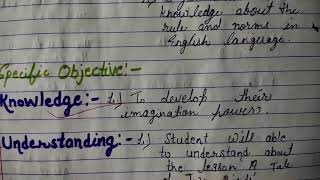 knowledge about the
rule and norms in
English language.
Specific Objective:-
Knowledge:- 1.) To develop their
imagination power.
Understanding:- 1.) Student will able
to understand about
the lesson A Tale
of Two